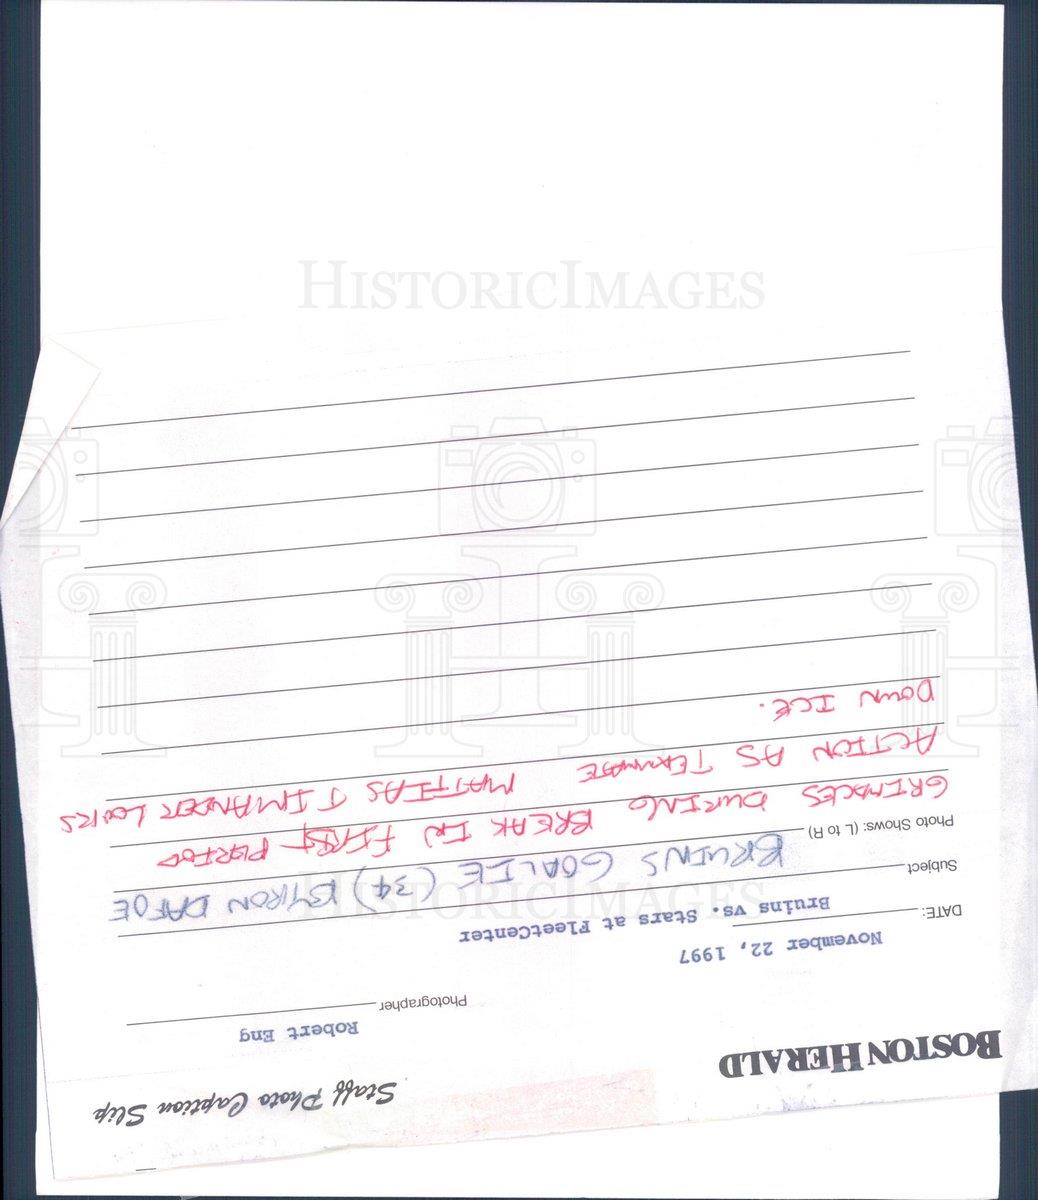 Staff Photo Caption Slip
BOSTON HERALD
Robert Eng
Photographer
November 22, 1997
DATE:
Bruins vs. Stars at FleetCenter
Subject
BRUINS GOALIE (34) BYRON DAFOE
Photo Shows: (L to R)
GRIMACES DURING BREAK IN FIRST PERIOD
ACTION AS TEAMMATE MATTIAS TIMANDER LOOKS
DOWN ICE.
HISTORICIMAGES
HISTORICIMAGES